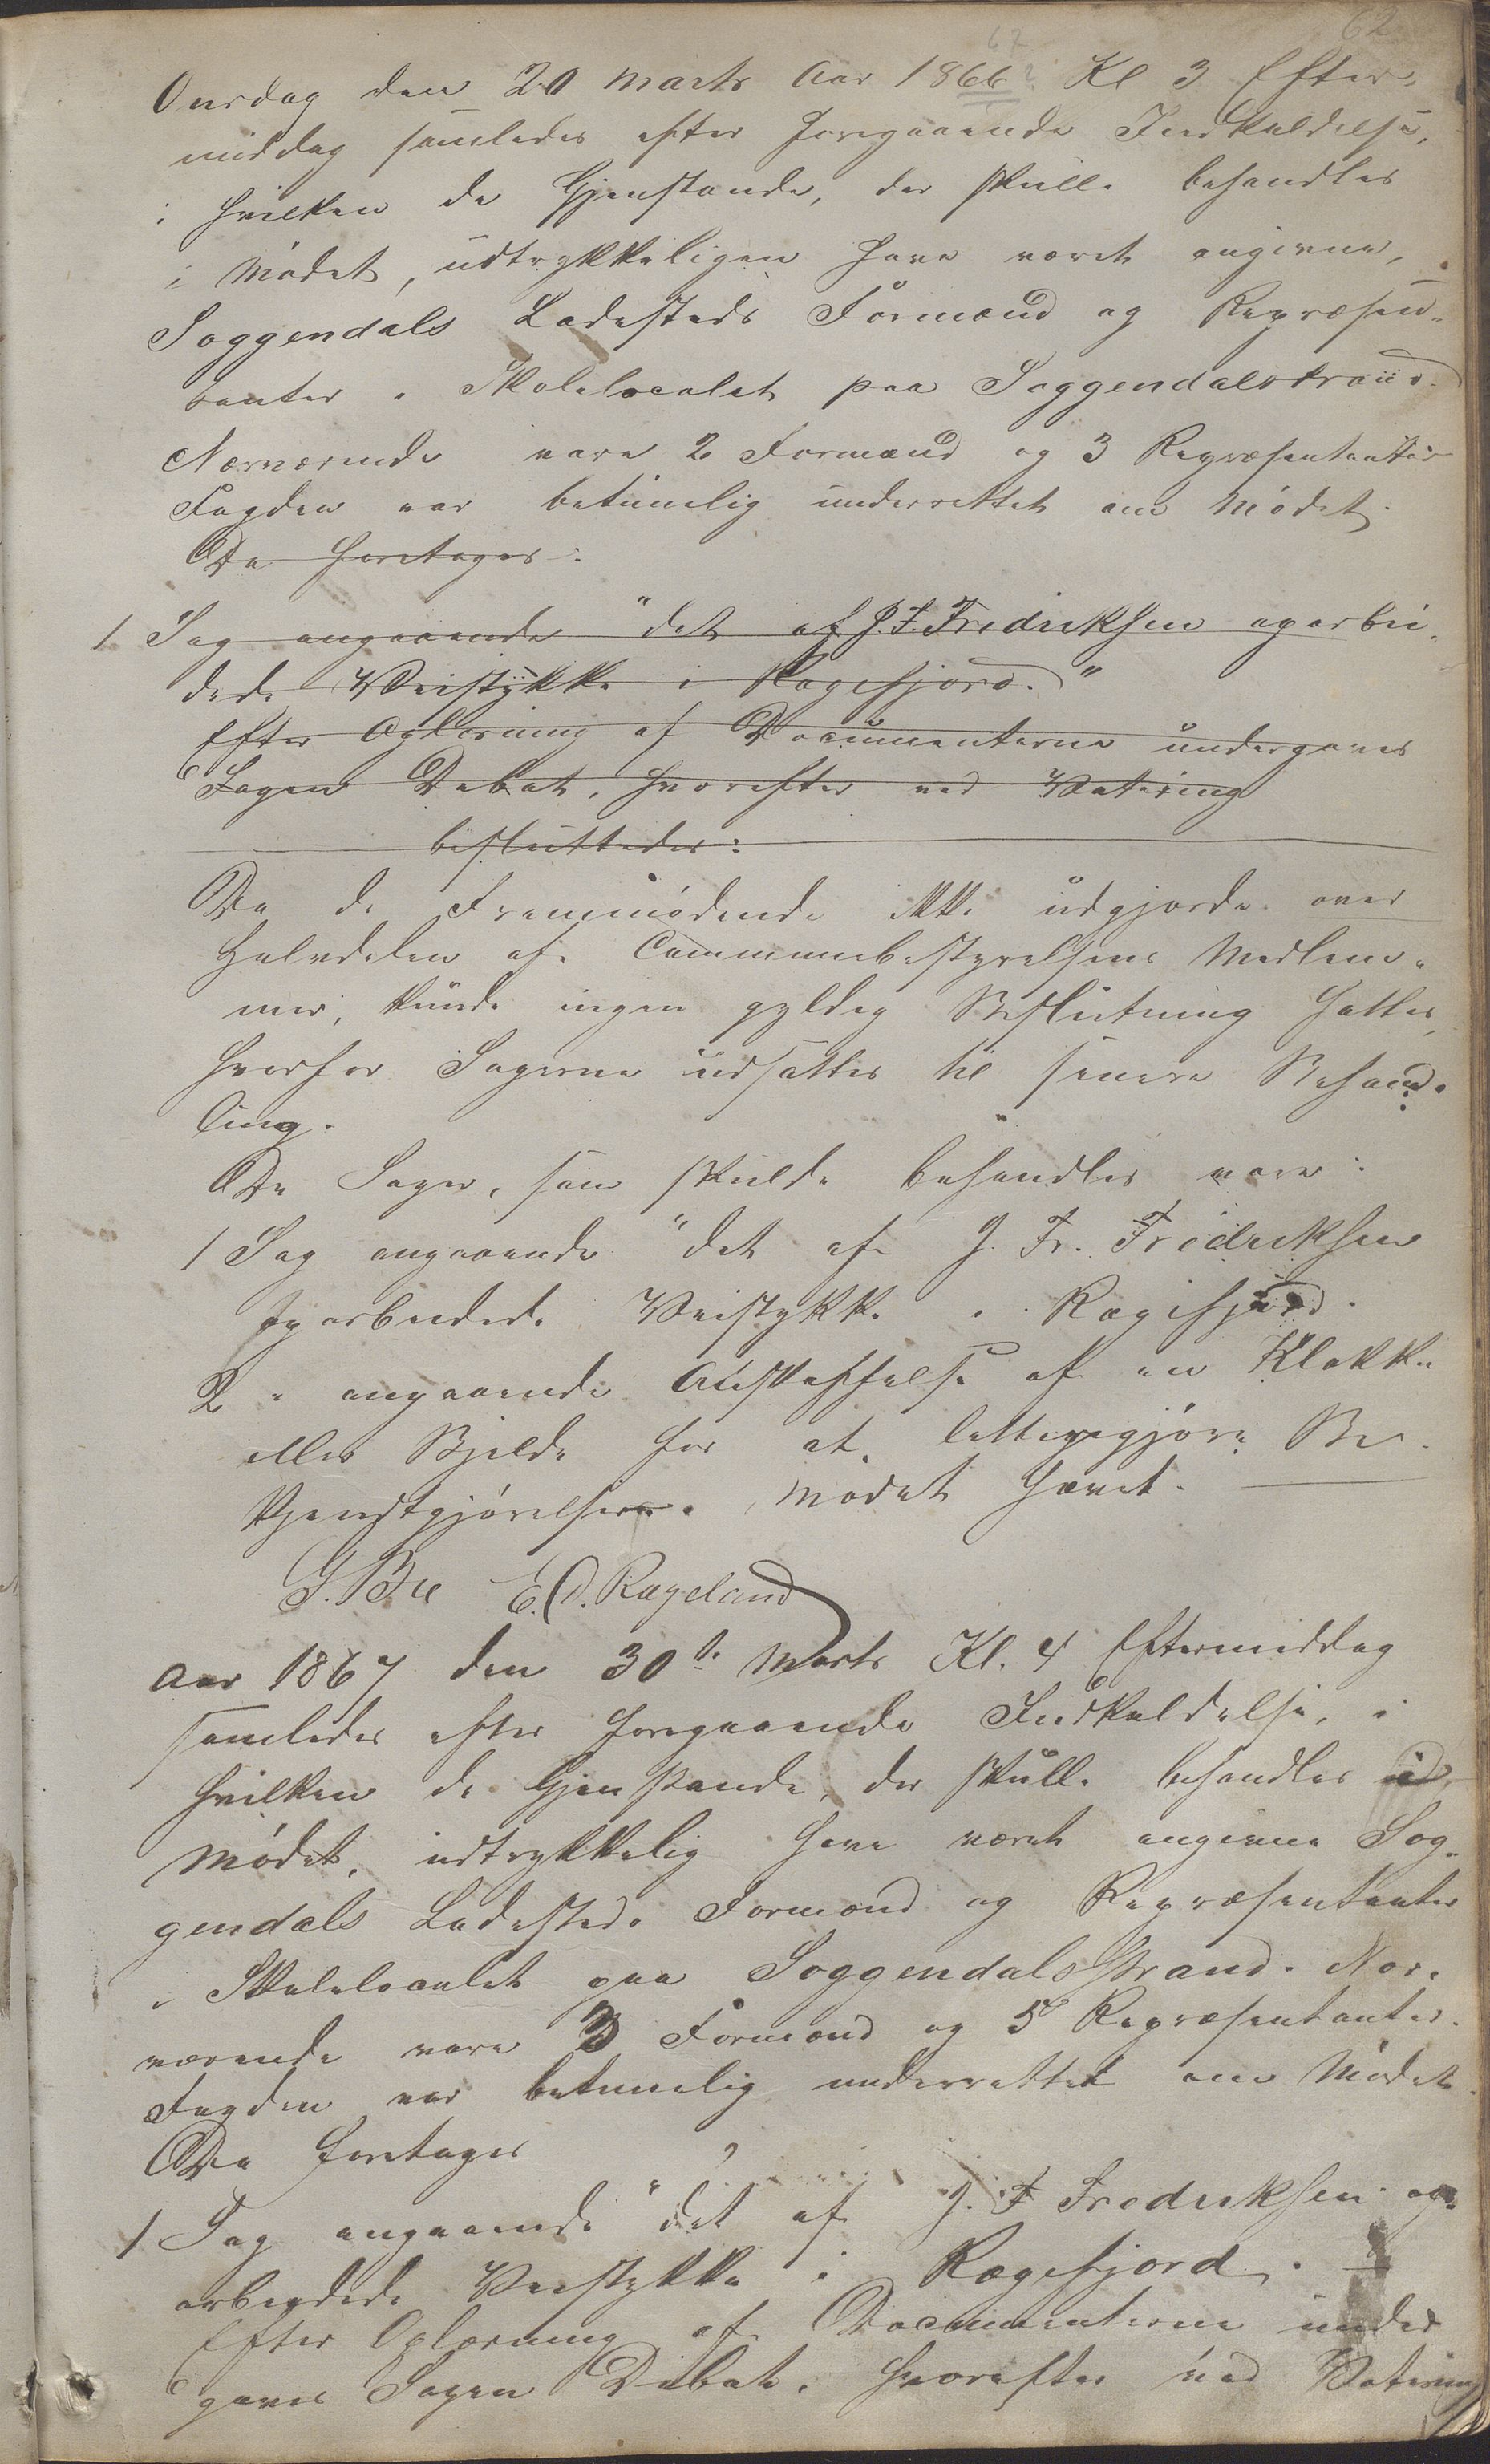 62
67
Onsdag den 20 Marts Aar 1866? Kl 3 Efter-
middag samledes efter foregaaende Indkaldelse,
i hvilken de Gjenstande, der skulle behandles
i Mødet, udtrykkeligen have været angivne,
Soggendals Ladesteds Formænd og Repræsen-
tanter i Skolelocalet paa Soggendalstrand.
Nærværende vare 2 Formænd og 3 Repræsentanter
Fogden var betimelig underrettet om Mødet.
Da foretoges:
1 Sag angaaende "det af J. F. Fredriksen oparbei-
dede Veistykke i Rægefjord."
Efter Oplæsning af Documenterne undergaves
Sagen Debat, hvorefter ved Votering
besluttedes:
Da de Fremmødende ikke udgjorde over
Halvdelen af Communebestyrelsens Medlem-
mer, kunde ingen gyldig Beslutning fattes,
hvorfor Sagerne udsattes til senere Behand-
ling.
De Sager, som skulde behandles vare:
1 Sag angaaende "det af J. Fr. Fredriksen
oparbeidede Veistykke i Rægefjord.
2 " angaaende Anskaffelse af en Klokke
eller Bjelde for at lettere gjøre Be-
kjendtgjørelser. Mødet hævet.
G. Bu E. O. Rægeland
Aar 1867 den 30te Marts Kl. 4 Eftermiddag
samledes efter foregaaende Indkaldelse, i
hvilken de Gjenstande, der skulle behandles i
Mødet, udtrykkelig have været angivne Sog-
gendals Ladesteds Formænd og Repræsentanter
i Skolelocalet paa Soggendalsstrand. Nær-
værende vare 3 Formænd og 5 Repræsentanter.
Fogden var betimelig underrettet om Mødet.
Da foretoges
1 Sag angaaende "det af J. F Fredriksen op-
arbeydede Veistykke i Rægefjord.
Efter Oplæsning af Documenterne under
gaves Sagen Debat, hvorefter ved Votering